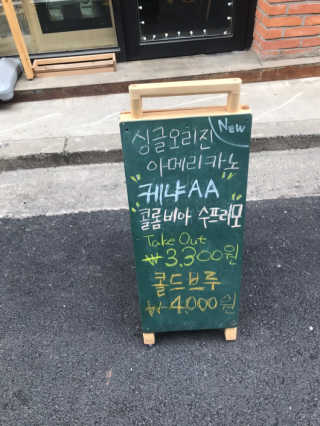 싱글오리진 NEW
아메리카노
"케냐AA"
"콜롬비아 수프레모"
Take Out
₩3,300원
콜드브루
₩4,000원